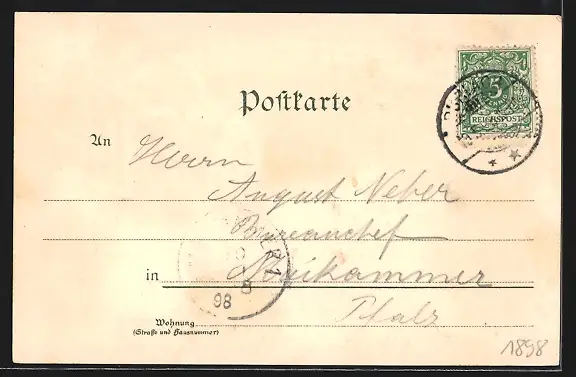 5
REICHSPOST
Postkarte
An Herrn
August Neber
Bureauchef
in Maikammer
Pfalz
98
Wohnung
(Straße und Hausnummer)
1898